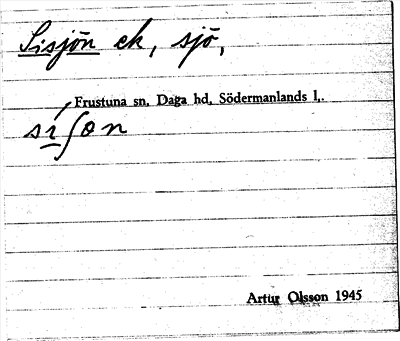 Sisjön ek, sjö,
Frustuna sn, Daga hd, Södermanlands l.
si̱ʃon
Artur Olsson 1945